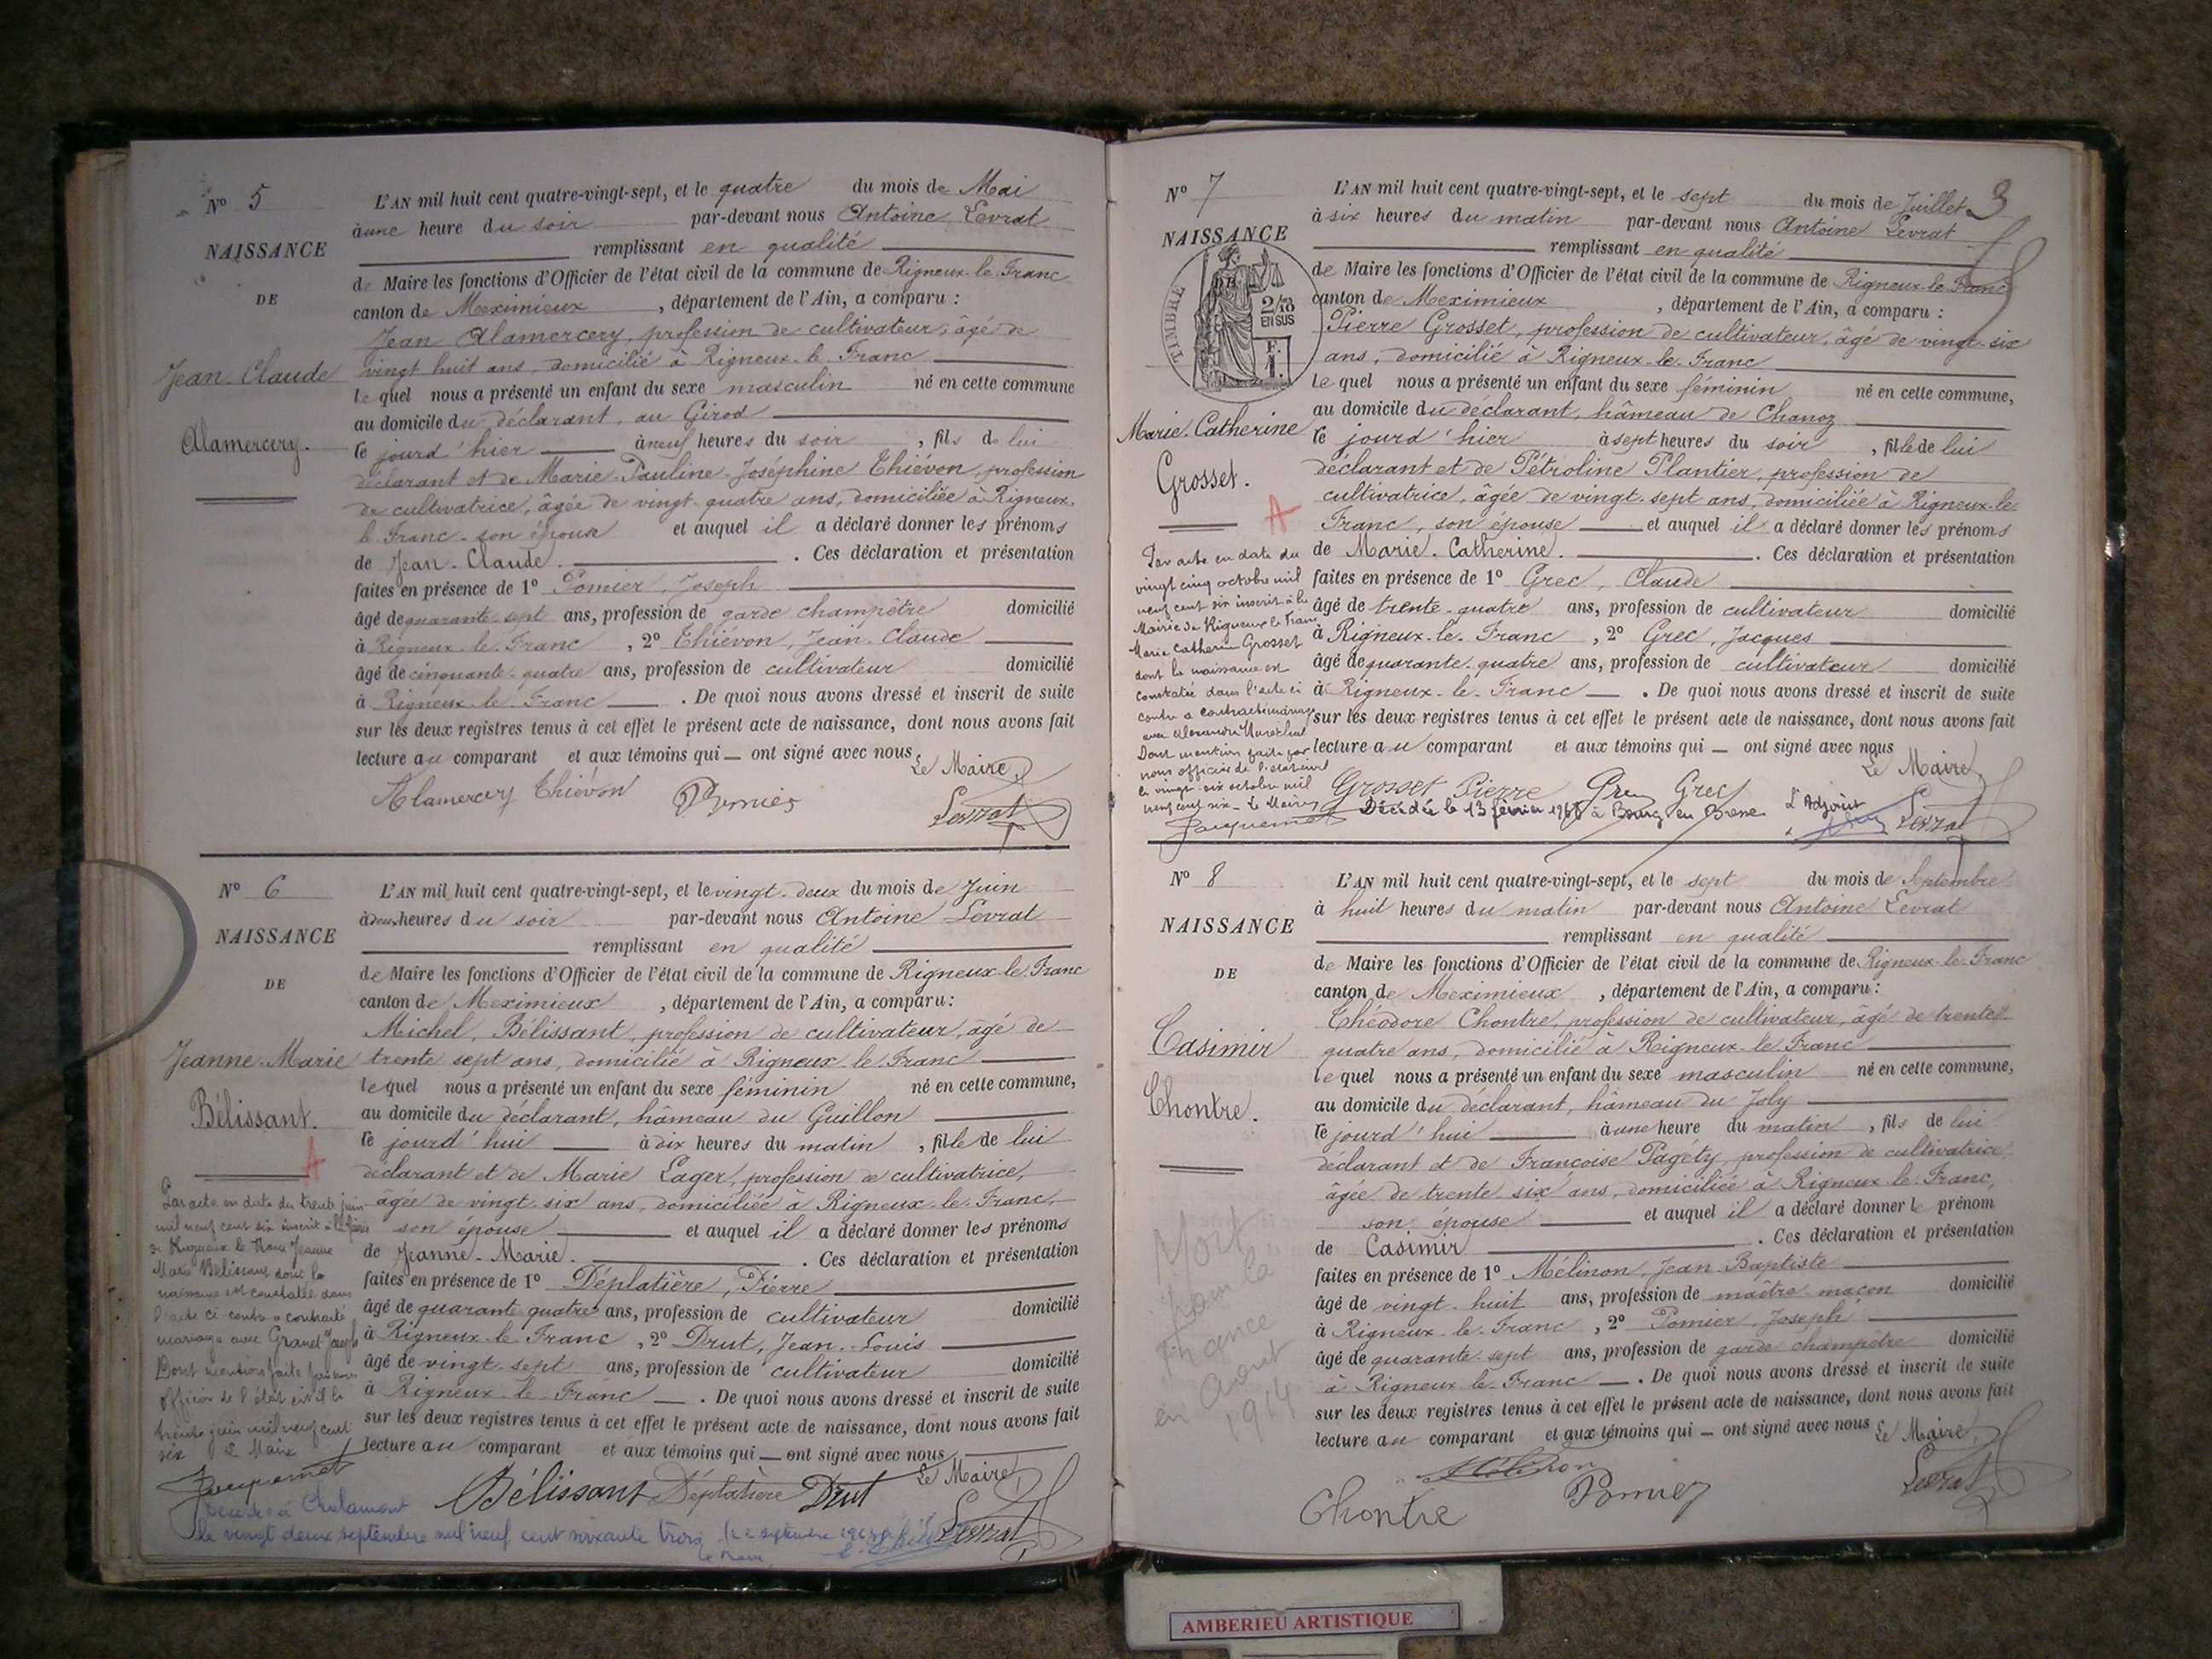 N° 5
NAISSANCE
DE
Jean-Claude
Alamercery.
L'AN mil huit cent quatre-vingt-sept, et le quatre du mois de Mai
à une heure du soir par-devant nous Antoine Levrat
remplissant en qualité
de Maire les fonctions d'Officier de l'état civil de la commune de Rigneux-le-Franc
canton de Meximieux, département de l'Ain, a comparu :
Jean Alamercery, profession de cultivateur, âgé de
vingt huit ans, domicilié à Rigneux-le-Franc
lequel nous a présenté un enfant du sexe masculin né en cette commune
au domicile du déclarant, au Girod
le jourd'hier à neuf heures du soir, fils de lui
déclarant et de Marie-Pauline-Joséphine Thiévon, profession
de cultivatrice, âgée de vingt-quatre ans, domiciliée à Rigneux-
le-Franc, son épouse et auquel il a déclaré donner les prénoms
de Jean-Claude. Ces déclaration et présentation
faites en présence de 1° Pomier, Joseph
âgé de quarante-sept ans, profession de garde champêtre domicilié
à Rigneux-le-Franc, 2° Thiévon, Jean-Claude
âgé de cinquante-quatre ans, profession de cultivateur domicilié
à Rigneux-le-Franc. De quoi nous avons dressé et inscrit de suite
sur les deux registres tenus à cet effet le présent acte de naissance, dont nous avons fait
lecture au comparant et aux témoins qui — ont signé avec nous.
Le Maire,
Alamercery Thiévon Pomier Levrat
N° 6
NAISSANCE
DE
Jeanne-Marie
Bélissant.
A
L'AN mil huit cent quatre-vingt-sept, et le vingt-deux du mois de Juin
à deux heures du soir par-devant nous Antoine Levrat
remplissant en qualité
de Maire les fonctions d'Officier de l'état civil de la commune de Rigneux-le-Franc
canton de Meximieux, département de l'Ain, a comparu :
Michel, Bélissant, profession de cultivateur, âgé de
trente sept ans, domicilié à Rigneux-le-Franc
lequel nous a présenté un enfant du sexe féminin né en cette commune,
au domicile du déclarant, hâmeau du Guillon
le jourd'hui à dix heures du matin, fille de lui
déclarant et de Marie Lager, profession de cultivatrice,
âgée de vingt-six ans, domiciliée à Rigneux-le-Franc,
son épouse et auquel il a déclaré donner les prénoms
de Jeanne-Marie. Ces déclaration et présentation
faites en présence de 1° Déplatière, Pierre
âgé de quarante quatre ans, profession de cultivateur domicilié
à Rigneux-le-Franc, 2° Drut, Jean-Louis
âgé de vingt-sept ans, profession de cultivateur domicilié
à Rigneux-le-Franc. De quoi nous avons dressé et inscrit de suite
sur les deux registres tenus à cet effet le présent acte de naissance, dont nous avons fait
lecture au comparant et aux témoins qui — ont signé avec nous
Le Maire
Bélissant Déplatière Drut Levrat
Par acte en date du trente juin
mil neuf cent six inscrit à la Mairie
de Rigneux le Franc Jeanne
Marie Bélissant dont la
naissance est constatée dans
l'acte ci-contre a contracté
mariage avec Granet Joseph
Dont mention faite par nous
officier de l'état civil le
trente juin mil neuf cent
six Le Maire
Jacquemet
Décédée à Chalamont
le vingt deux septembre mil neuf cent soixante trois
N° 7
NAISSANCE
DE
TIMBRE
2/10
EN SUS
F.
1.
Marie-Catherine
Grosset.
A
3
L'AN mil huit cent quatre-vingt-sept, et le sept du mois de Juillet
à six heures du matin par-devant nous Antoine Levrat
remplissant en qualité
de Maire les fonctions d'Officier de l'état civil de la commune de Rigneux-le-Franc
canton de Meximieux, département de l'Ain, a comparu :
Pierre Grosset, profession de cultivateur, âgé de vingt-six
ans, domicilié à Rigneux-le-Franc
lequel nous a présenté un enfant du sexe féminin né en cette commune,
au domicile du déclarant, hâmeau de Chanoz
le jourd'hier à sept heures du soir, fille de lui
déclarant et de Pétroline Plantier, profession de
cultivatrice, âgée de vingt-sept ans, domiciliée à Rigneux-le-
Franc, son épouse et auquel il a déclaré donner les prénoms
de Marie-Catherine. Ces déclaration et présentation
faites en présence de 1° Grec, Claude
âgé de trente-quatre ans, profession de cultivateur domicilié
à Rigneux-le-Franc, 2° Grec, Jacques
âgé de quarante-quatre ans, profession de cultivateur domicilié
à Rigneux-le-Franc. De quoi nous avons dressé et inscrit de suite
sur les deux registres tenus à cet effet le présent acte de naissance, dont nous avons fait
lecture au comparant et aux témoins qui — ont signé avec nous
Le Maire,
Grosset Pierre Grec Grec Levrat
Par acte en date du
vingt cinq octobre mil
neuf cent six inscrit à la
Mairie de Rigneux le Franc
Marie Catherine Grosset
dont la naissance est
constatée dans l'acte ci
contre a contracté mariage
avec Alexandre Maréchal
Dont mention faite par
nous officier de l'état civil
le vingt-six octobre mil
neuf cent six - Le Maire
Jacquemet
Décédée le 13 février à Bourg en Bresse L'Adjoint
N° 8
NAISSANCE
DE
Casimir
Chontre.
L'AN mil huit cent quatre-vingt-sept, et le sept du mois de Septembre
à huit heures du matin par-devant nous Antoine Levrat
remplissant en qualité
de Maire les fonctions d'Officier de l'état civil de la commune de Rigneux-le-Franc
canton de Meximieux, département de l'Ain, a comparu :
Théodore Chontre, profession de cultivateur, âgé de trente
quatre ans, domicilié à Rigneux-le-Franc
lequel nous a présenté un enfant du sexe masculin né en cette commune,
au domicile du déclarant, hâmeau du Joly
le jourd'hui à une heure du matin, fils de lui
déclarant et de Françoise Pagéty, profession de cultivatrice,
âgée de trente-six ans, domiciliée à Rigneux-le-Franc,
son épouse et auquel il a déclaré donner le prénom
de Casimir. Ces déclaration et présentation
faites en présence de 1° Mélinon, Jean-Baptiste
âgé de vingt-huit ans, profession de maître maçon domicilié
à Rigneux-le-Franc, 2° Pomier, Joseph
âgé de quarante-sept ans, profession de garde champêtre domicilié
à Rigneux-le-Franc. De quoi nous avons dressé et inscrit de suite
sur les deux registres tenus à cet effet le présent acte de naissance, dont nous avons fait
lecture au comparant et aux témoins qui — ont signé avec nous
Le Maire,
Mélinon
Chontre Pomier Levrat
Mort
pour la
France
en Août
1914
AMBERIEU ARTISTIQUE